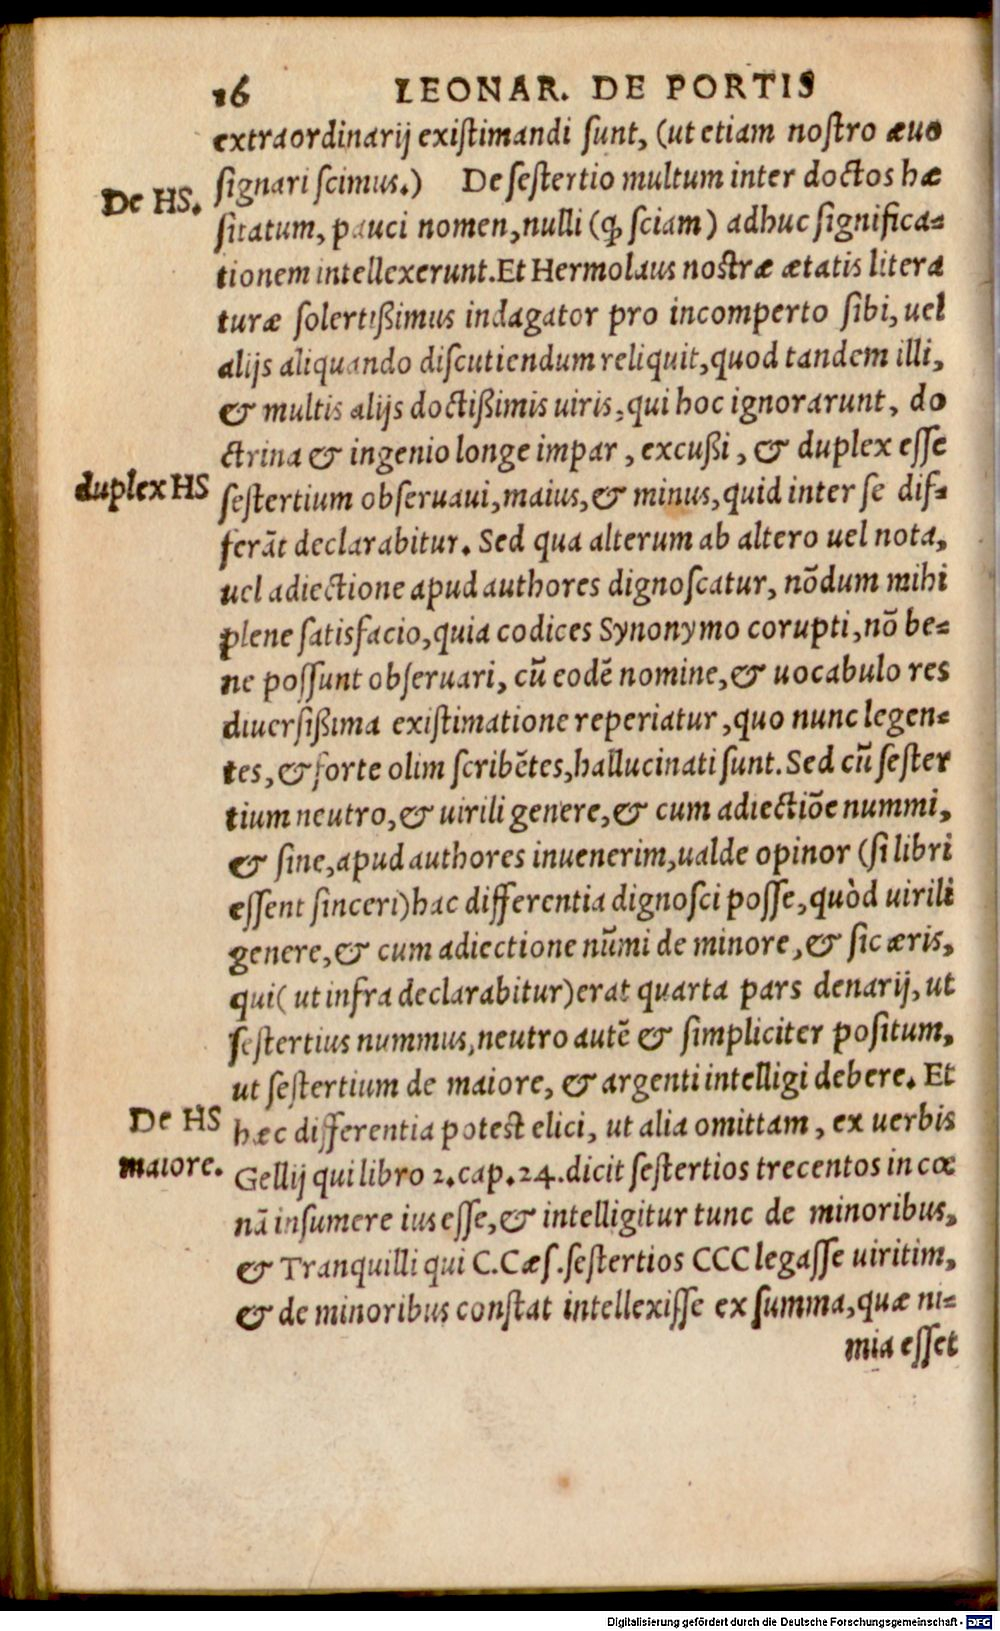 16 LEONAR. DE PORTIS
extraordinarij existimandi sunt, (ut etiam nostro æuo
De HS.
signari scimus.) De sestertio multum inter doctos hæ
sitatum, pauci nomen, nulli (ꝙ sciam) adhuc significa=
tionem intellexerunt. Et Hermolaus nostræ ætatis litera
turæ solertißimus indagator pro incomperto sibi, uel
alijs aliquando discutiendum reliquit, quod tandem illi,
& multis alijs doctißimis uiris, qui hoc ignorarunt, do
ctrina & ingenio longe impar, excußi, & duplex esse
duplex HS
sestertium obseruaui, maius, & minus, quid inter se dif=
ferāt declarabitur. Sed qua alterum ab altero uel nota,
uel adiectione apud authores dignoscatur, nōdum mihi
plene satisfacio, quia codices Synonymo corupti, nō be=
ne possunt obseruari, cū eodē nomine, & uocabulo res
diuersißima existimatione reperiatur, quo nunc legen=
tes, & forte olim scribētes, hallucinati sunt. Sed cū sester
tium neutro, & uirili genere, & cum adiectiōe nummi,
& sine, apud authores inuenerim, ualde opinor (si libri
essent sinceri) hac differentia dignosci posse, quòd uirili
genere, & cum adiectione nūmi de minore, & sic æris,
qui (ut infra declarabitur) erat quarta pars denarij, ut
sestertius nummus, neutro autē & simpliciter positum,
ut sestertium de maiore, & argenti intelligi debere. Et
De HS
maiore.
hæc differentia potest elici, ut alia omittam, ex uerbis
Gellij qui libro 2. cap. 24. dicit sestertios trecentos in cœ
nā insumere ius esse, & intelligitur tunc de minoribus,
& Tranquilli qui C. Cæs. sestertios CCC legasse uiritim,
& de minoribus constat intellexisse ex summa, quæ ni=
mia esset
Digitalisierung gefördert durch die Deutsche Forschungsgemeinschaft - DFG